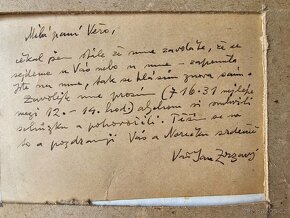 Milá paní Věro,
čekal jsem stále že mne zavoláte, že se
sejdeme u Vás nebo u mne - zapomněla
jste na mne, tak se hlásím znova sám -
Zavolejte mne prosím (7 16-31 nejlépe
mezi 12. - 14. hod.) abychom si smluvili
schůzku a pohovořili. Těším se na
to a pozdravuji Vás a srdečně
Váš Jan